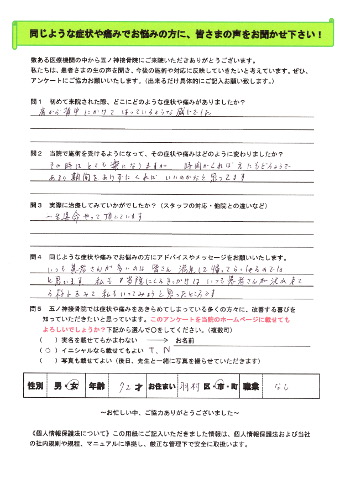 同じような症状や痛みでお悩みの方に、皆さまの声をお聞かせ下さい！
数ある医療機関の中から五ノ神接骨院にご来院いただきありがとうございます。
私たちは、患者さまの生の声を聞き、今後の施術や対応に反映していきたいと考えています。ぜひ、
アンケートにご協力お願いいたします。（出来るだけ具体的にご記入お願い致します。）
問１　初めて来院された際、どこにどのような症状や痛みがありましたか？
肩から背中にかけてはっているような感じでした
問２　当院で施術を受けるようになって、その症状や痛みはどのように変わりましたか？
その時はとても楽になりますが　時間がたてば元にもどるようで
あまり期間をあけずにくれば　いいのかなと思ってます
問３　実際に治療してみていかがでしたか？（スタッフの対応・他院との違いなど）
一生懸命やって頂いています
問４　同じような症状や痛みでお悩みの方にアドバイスやメッセージをお願いいたします。
いつも患者さんが多いのは皆さん満足して帰ってらっしゃるのでは
と思います　私も
いつも患者さんが
私もいってみようと思ったところです
問５　五ノ神接骨院では症状や痛みをあきらめてしまっている多くの方々に、改善する喜びを
知っていただきたいと思っています。このアンケートを当院のホームページに載せても
よろしいでしょうか？下記から選んで○をしてください。（複数可）
（　）実名を載せてもかまわない　→　お名前
（○）イニシャルなら載せてもよい　T. N
（　）写真も載せてよい（後日、先生と一緒に写真を撮らせていただきます）
性別　男・女　年齢　72才　お住まい　羽村　区・市・町　職業　なし
～お忙しい中、ご協力ありがとうございました～
《個人情報保護法について》この用紙にご記入いただきました情報は、個人情報保護法および当社
の社内規則や規程、マニュアルに準拠し、厳正な管理下で安全に取扱います。